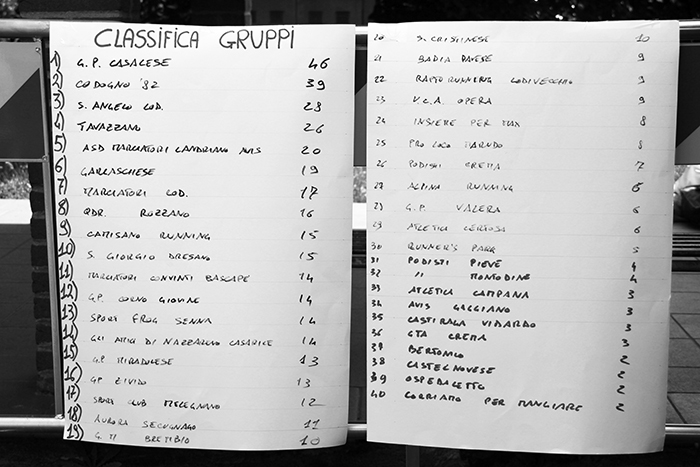 CLASSIFICA GRUPPI
1) G.P. CASALESE 46
2) CODOGNO '82 39
3) S. ANGELO LOD. 28
4) TAVAZZANO 26
5) ASD MARCIATORI LANDRIANO AVIS 20
6) GARLASCHESE 19
7) MARCIATORI LOD. 17
8) QDR. ROZZANO 16
9) CAMISANO RUNNING 15
10) S. GIORGIO DRESANO 15
11) MARCIATORI CONVINTI BASCAPE 14
12) G.P. CORNO GIOVINE 14
13) SPORT FROG SENNA 14
14) GLI AMICI DI NAZZARENO CASARILE 14
15) G.P. MIRADOLESE 13
16) GP ZIVIDO 13
17) SPORT CLUB MELEGNANO 12
18) AURORA SECUGNAGO 11
19) G.M BREMBIO 10
20 S. CRISTINESE 10
21 BADIA PAVESE 9
22 RAPTO RUNNING LODIVECCHIO 9
23 U.C.A. OPERA 9
24 INSIEME PER MAX 8
25 PRO LOCO MARUDO 8
26 PODISTI CREMA 7
27 ALPINA RUNNING 6
28 G.P. VALERA 6
29 ATLETICA CERTOSA 6
30 RUNNER'S PARK 5
31 PODISTI PIEVE 4
32 " MONTODINE 4
33 ATLETICA CAMPANA 3
34 AVIS GAGGIANO 3
35 CASTIRAGA VIDARDO 3
36 GTA CREMA 3
37 BERTONICO 2
38 CASTELNOVESE 2
39 OSPEDALETTO 2
40 CORRIAMO PER MANGIARE 2